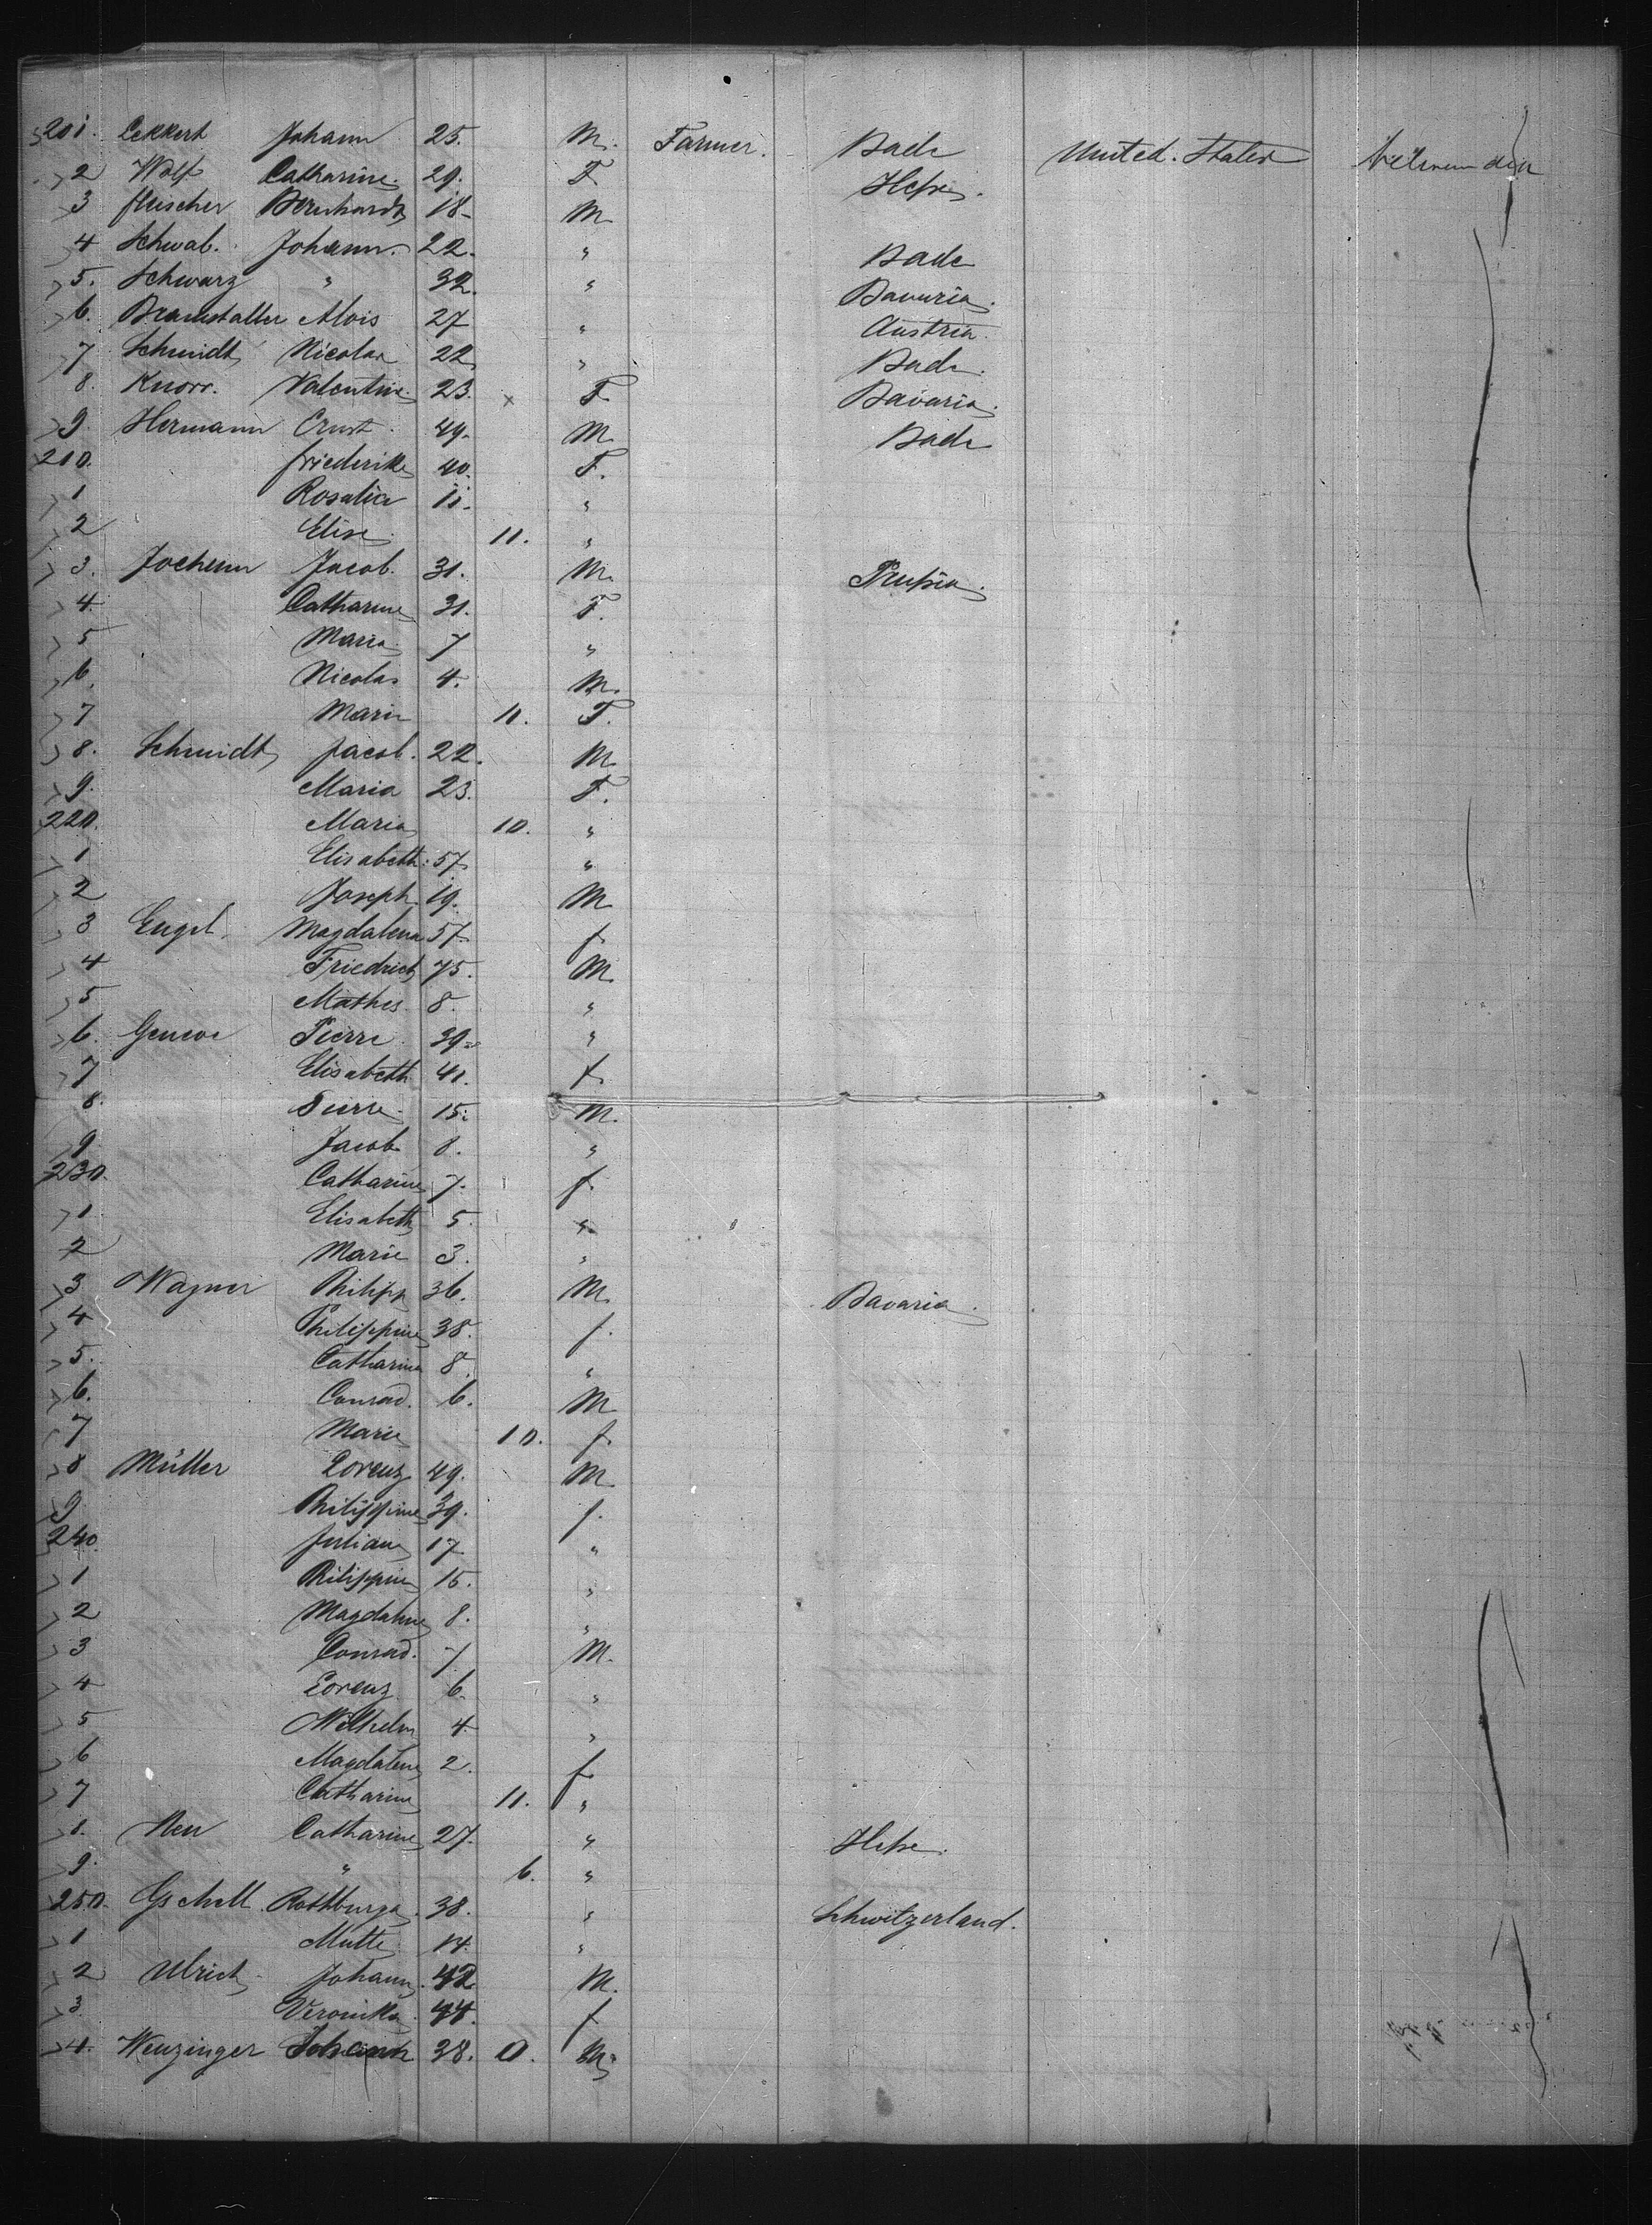 201. Eckkert Johann 25. M. Farmer. Bade United. States
2 Wolf Catharine 29. F Hesse.
3 fleischer Bernhardt 18- M
4 Schwab. Johann. 22. " Bade
5. Schwarz " 32. " Bavaria.
6. Alois 27 " Austria.
7 Schmidt Nicolas 22 " Bade.
8. Knorr. Valentine 23. x F. Bavaria.
9. Hermann Ernst. 49. M. Bade
210. friederike 40. F.
1 Rosalia 11. "
2 Elise 11. "
3. Jochem Jacob. 31. M. Prussia.
4. Catharine 31. F.
5 Maria 7 "
6. Nicolas 4. M.
7 Marie 11. F.
8. Schmidt Jacob. 22. M
9. Maria 23. F.
220. Maria 10. "
1 Elisabeth. 57 "
2 Joseph 19. M
3 Engel. Magdalena 57 f.
4 Friedrich 75. M
5 Mathes 8. "
6. Pierre 39. "
7 Elisabeth 41. f.
8. Pierre 15. M.
9. Jacob 8. "
230. Catharine 7. f.
1 Elisabeth 5. "
2 Marie 3. "
3 Wagner Philipp 36. M. Bavaria.
4 Philippine 38. f.
5. Catharina 8. "
6. Conrad. 6. M
7 Marie 10. f.
8 Müller Lorenz 49. M
9 Philippine 39. f.
240. Juliane 17 "
1 Philippine 15. "
2 Magdalene 8. "
3 Conrad. 7. M.
4 Lorenz 6. "
5 Wilhelm 4 "
6 Magdalene 2. f.
7 Catharine 11. "
8. Neu Catharine 27. " Hesse.
9. " 6. "
250. Gschell Rothburga 38. " Schwitzerland.
1 14. "
2 Ulrich Johann 42 M.
3. Veronika 44. f
4. Wenzinger Johann 38. 0. M.